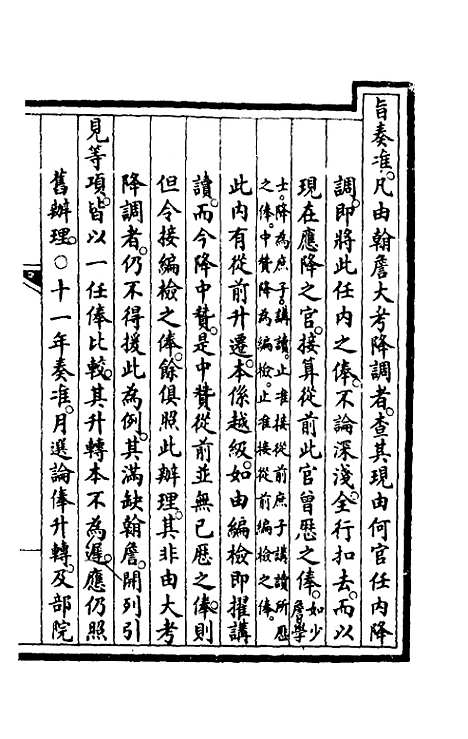 旨奏准。凡由翰詹大考降調者。查其現由何官任內降
調。即將此任內之俸。不論深淺。全行扣去。而以
現在應降之官。接算從前此官曾歷之俸。如少詹學
士。降為庶子。講讀。止准接從前庶子講讀所歷
之俸。中贊降為編檢。止准接從前編檢之俸。
此內有從前升遷。本係越級。如由編檢即擢講
讀。而今降中贊。是中贊從前並無已歷之俸。則
但令接編檢之俸。餘俱照此辦理。其非由大考
降調者。仍不得援此為例。其滿缺翰詹。開列引
見等項。皆以一任俸比較。其升轉本不為遲。應仍照
舊辦理。○十一年奏准。月選論俸升轉。及部院